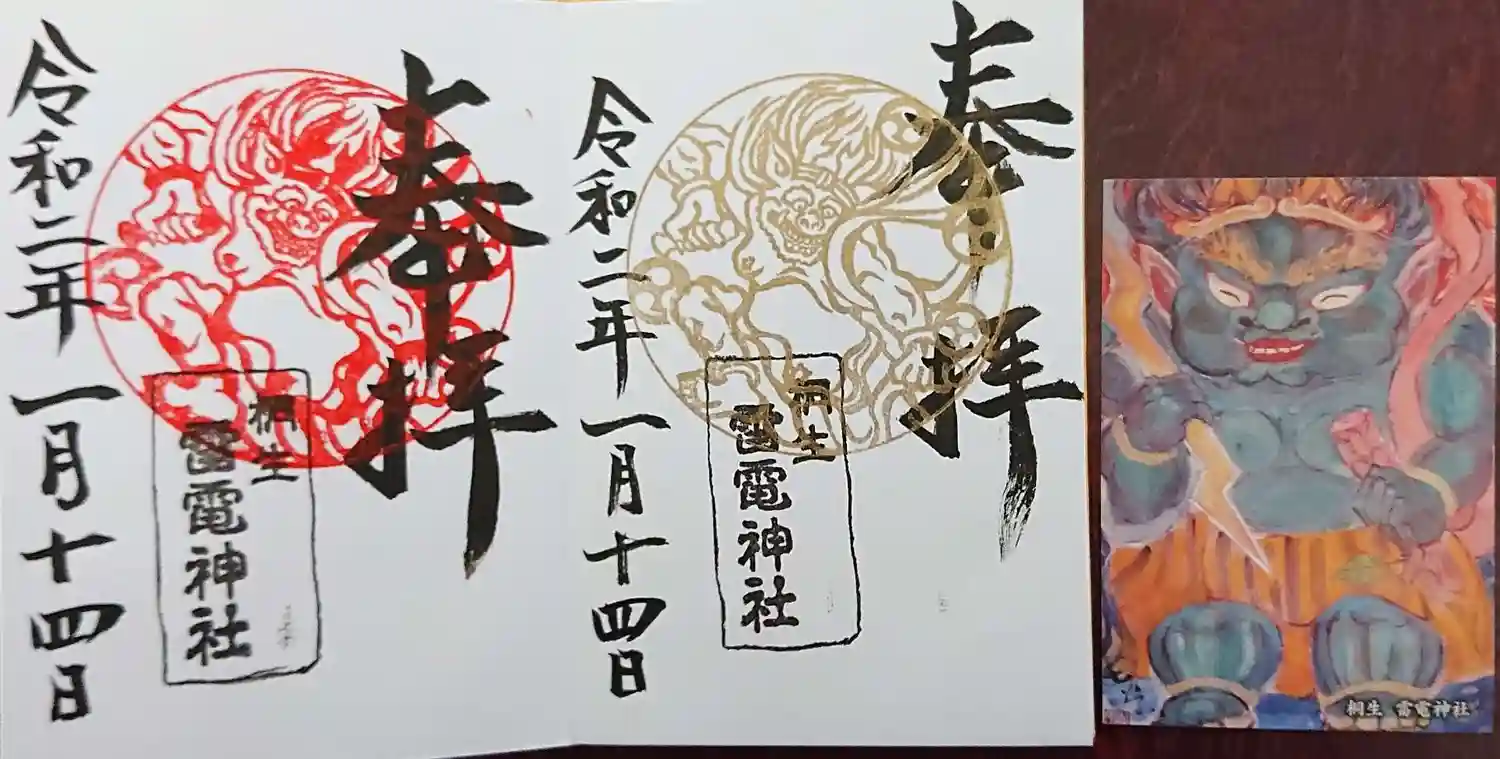 奉拝
桐生
雷電神社
令和二年一月十四日
奉拝
桐生
雷電神社
令和二年一月十四日
桐生 雷電神社